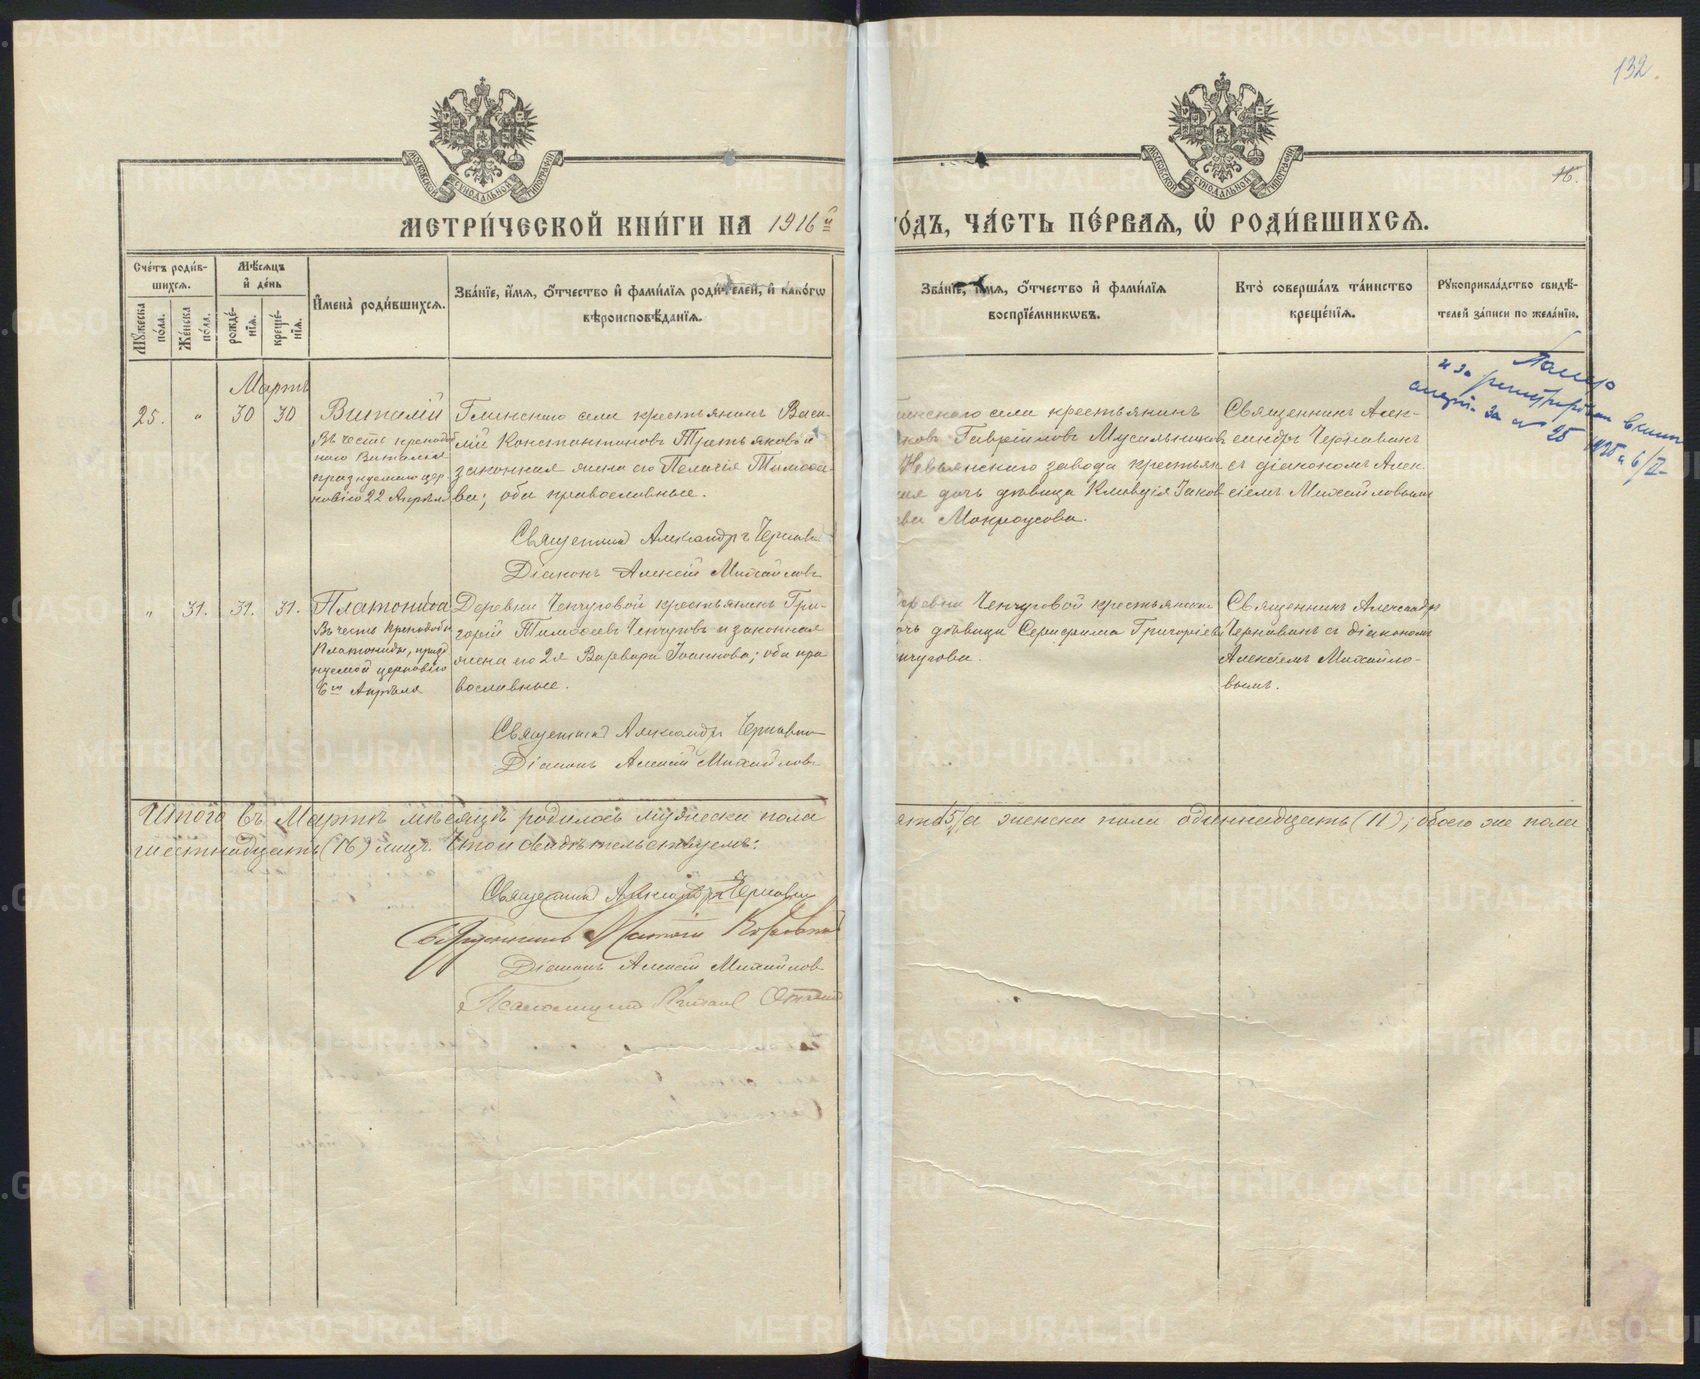 132.
16.
МЕТРИ́ЧЕСКОЙ КНИ́ГИ НА 1916 й
ГО́ДЪ, ЧА́СТЬ ПЕ́РВАѦ, Ѽ РОДИ́ВШИХСѦ.
Сче́тъ роди́в-
шихсѧ.
Мѣ́сѧцъ
и҆ де́нь
И҆мена̀ роди́вшихсѧ.
Зва́нїе, и҆́мѧ, ѻ҆́тчество и҆ фами́лїѧ роди́телей, и҆ како́гѡ
вѣроисповѣ́данїѧ.
Мꙋ́жеска
по́ла.
Же́нска
по́ла.
рожде́-
нїѧ.
креще́-
нїѧ.
Зва́нїе, и҆́мѧ, ѻ҆́тчество и҆ фами́лїѧ
воспрїе́мникѡвъ.
Кто̀ соверша́лъ та́инство
креще́нїѧ.
Рꙋкоприкла́дство свидѣ́-
телей за́писи по жела́нїю.
Мартъ
25. " 30 30
Виталій
Въ честь преподоб
наго Виталія
празднуемаго цер
ковію 22 Апрѣля
Глинскаго села крестьянинъ Васи-
лій Константиновъ Третьяковъ и
законная жена его Пелагія Тимофѣе-
ва; оба православные.
Священникъ Александръ Чернавинъ
Діаконъ Алексій Михайловъ
Глинскаго села крестьянинъ
Гавріиловъ Мусальниковъ
Невьянскаго завода крестьян
дочь дѣвица Клавдія Іаков
ева Мокроусова.
Священникъ Алек-
сандръ Чернавинъ
съ діакономъ Алек-
сіемъ Михайловымъ
за № 25 1925 г. 6/II
" 31. 31. 31.
Платонида
Въ честь Преподобн
Платониды, празд
нуемой церковію
6го Апрѣля
Деревни Ченчуговой крестьянинъ Гри-
горій Тимофеевъ Ченчуговъ и законная
жена его 2я Варвара Іоаннова; оба пра
вославные.
Священникъ Александръ Чернавинъ
Діаконъ Алексій Михайловъ
Деревни Ченчуговой крестьянина
дочь дѣвица Серафима Григоріева
Ченчугова.
Священникъ Александръ
Чернавинъ съ діакономъ
Алексіемъ Михайло-
вымъ.
Итого въ Мартѣ мѣсяцѣ родилось мужеска пола
пять 5/, а женска пола одиннадцать (11); обоего же пола
шестнадцать (16) лицъ. Что и свидѣтельствуемъ:
Священникъ Александръ Чернавинъ
Священникъ
Діаконъ Алексій Михайловъ
Псаломщикъ
METRIKI.GASO-URAL.RU